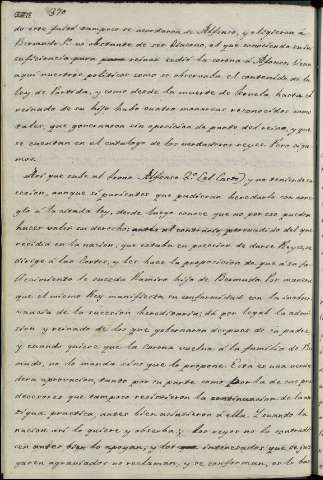 370
do este faltó tampoco se acordaron de Alfonso, y eligieron á
Bermudo 1º no obstante de ser Diácono, el que conociendo su in
suficiencia para reinar cedió la corona á Alfonso. Vean
aquí nuestros politicos como se observaba el contenido de la
ley de Partida, y como desde la muerte de Fruela hasta el
reinado de su hijo hubo cuatro monarcas reconocidos como
tales, que governaron sin oposicion de parte del reino, y que
se cuentan en el catalogo de los verdaderos reyes. Pero siga-
mos.
Así que sube al trono Alfonso 2º (el Casto) y no teniendo su
cesion, aunque sí parientes que pudieran heredarle con arre
glo á la citada ley, desde luego conoce que no por eso pueden
hacer valer su derecho, persuadido del que
residia en la nacion, que estaba en posesion de darse Reyes, se
dirige á las Cortes, y les hace la proposicion de que á su fa
llecimiento le suceda Ramiro hijo de Bermudo. Por manera
que el mismo Rey manifiesta su conformidad con la inobser
vancia de la succesion hereditaria; dá por legal la admi
sion y reinado de los que governaron despues de su padre
y cuando quiere que la Corona vuelva á la familia de Ber
mudo, no lo manda sino que lo propone. Esta es una verda
dera aprovacion, tanto por su parte como por la de sus pre
decesores que tampoco resistieron la continuacion de la an
tigua practica, antes bien asintieron á ella. Y cuando la
nacion asi lo quiere y observa; los reyes no lo contradi
cen antes bien lo apoyan, y los interesados que se juz
guen agraviados no reclaman, y se conforman, es lo bas